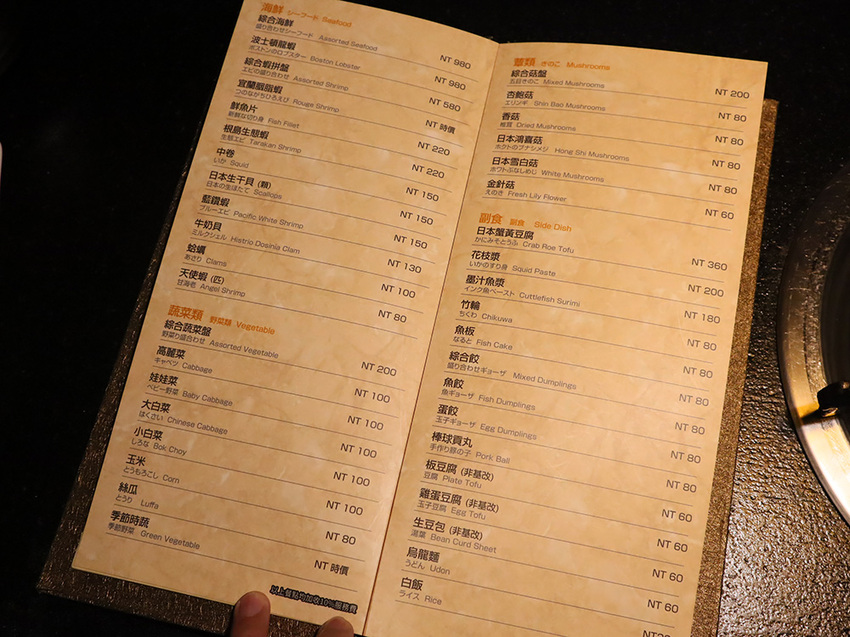 海鮮 シーフード Seafood
綜合海鮮
盛り合わせシーフード Assorted Seafood NT 980
波士頓龍蝦
ボストンのロブスター Boston Lobster NT 980
綜合蝦拼盤
エビの盛り合わせ Assorted Shrimp NT 580
宜蘭胭脂蝦
つのながちひろえび Rouge Shrimp NT 時價
鮮魚片
新鮮な切り身 Fish Fillet NT 220
根島生態蝦
生鮮エビ Tarakan Shrimp NT 220
中卷
いか Squid NT 150
日本生干貝 (顆)
日本の生ほたて Scallops NT 150
藍鑽蝦
ブルーエビ Pacific White Shrimp NT 150
牛奶貝
ミルクシェル Histrio Dosinia Clam NT 130
蛤蠣
あさり Clams NT 100
天使蝦 (匹)
甘海老 Angel Shrimp NT 80
蔬菜類 野菜類 Vegetable
綜合蔬菜盤
野菜り盛合わせ Assorted Vegetable NT 200
高麗菜
キャベツ Cabbage NT 100
娃娃菜
ベビー野菜 Baby Cabbage NT 100
大白菜
はくさい Chinese Cabbage NT 100
小白菜
しろな Bok Choy NT 100
玉米
とうもろこし Corn NT 100
絲瓜
とうり Luffa NT 80
季節時蔬
季節野菜 Green Vegetable NT 時價
以上餐點均加收10%服務費
蕈類 きのこ Mushrooms
綜合菇盤
五目きのこ Mixed Mushrooms NT 200
杏鮑菇
エリンギ Shin Bao Mushrooms NT 80
香菇
椎茸 Dried Mushrooms NT 80
日本鴻喜菇
ホクトのブナシメジ Hong Shi Mushrooms NT 80
日本雪白菇
ホワトぶなしめじ White Mushrooms NT 80
金針菇
えのき Fresh Lily Flower NT 60
副食 副食 Side Dish
日本蟹黃豆腐
かにみそとうふ Crab Roe Tofu NT 360
花枝漿
いかのすり身 Squid Paste NT 200
墨汁魚漿
インク魚ペースト Cuttlefish Surimi NT 180
竹輪
ちくわ Chikuwa NT 80
魚板
なると Fish Cake NT 80
綜合餃
盛り合わせギョーザ Mixed Dumplings NT 80
魚餃
魚ギョーザ Fish Dumplings NT 80
蛋餃
玉子ギョーザ Egg Dumplings NT 80
棒球貢丸
手作り豚の子 Pork Ball NT 80
板豆腐 (非基改)
豆腐 Plate Tofu NT 60
雞蛋豆腐 (非基改)
玉子豆腐 Egg Tofu NT 60
生豆包 (非基改)
湯葉 Bean Curd Sheet NT 60
烏龍麵
うどん Udon NT 60
白飯
ライス Rice